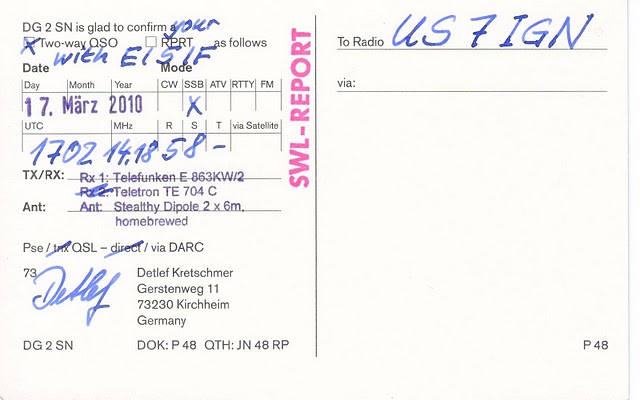 DG 2 SN is glad to confirm a your
X Two-way QSO RPRT as follows
with EI5IF
Date Mode
Day Month Year CW SSB ATV RTTY FM
17. März 2010 X
UTC MHz R S T via Satellite
1702 14,18 58 -
TX/RX: Rx 1: Telefunken E 863KW/2
Rx 2: Teletron TE 704 C
Ant: Ant: Stealthy Dipole 2 x 6m,
homebrewed
Pse / tnx QSL – direct / via DARC
73 Detlef Kretschmer
Detlef Gerstenweg 11
73230 Kirchheim
Germany
DG 2 SN DOK: P 48 QTH: JN 48 RP
SWL-REPORT
To Radio US7IGN
via:
P 48